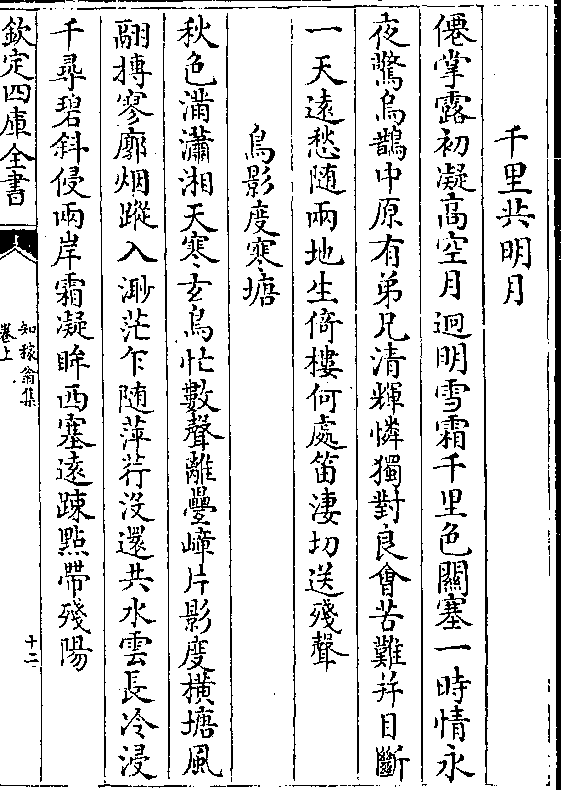 千里共明月
僊掌露初凝高空月迥明雪霜千里色關塞一時情永
夜驚烏鵲中原有弟兄清輝憐獨對良會苦難并目斷
一天遠愁随兩地生倚樓何處笛淒切送殘聲
鳥影度寒塘
秋色滿瀟湘天寒玄鳥忙數聲離疊嶂片影度橫塘風
翮摶寥廓烟蹤入渺茫乍随萍荇没還共水雲長冷浸
千尋碧斜侵兩岸霜凝眸西塞遠踈點帶殘陽
欽定四庫全書
知稼翁集
卷上
十二